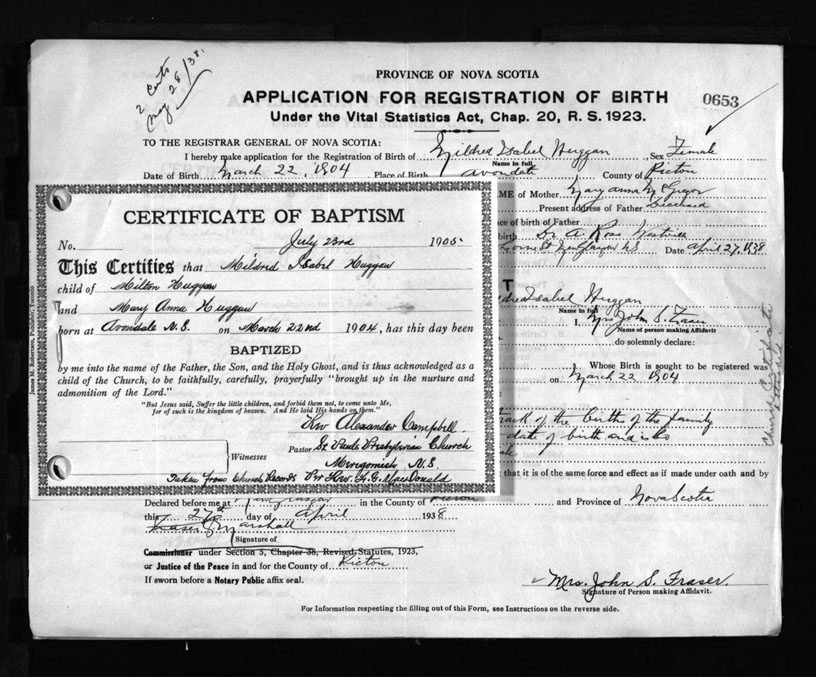 2 Certs
May 28/38.
PROVINCE OF NOVA SCOTIA
APPLICATION FOR REGISTRATION OF BIRTH
0653
Under the Vital Statistics Act, Chap. 20, R. S. 1923.
TO THE REGISTRAR GENERAL OF NOVA SCOTIA:
I hereby make application for the Registration of Birth of Mildred Isabel Huggan Sex Female
Name in full
Date of Birth March 22, 1904 Place of Birth Avondale County of Pictou
AME of Mother Mary Anna McGregor
Present address of Father Deceased
ce of birth of Father
birth Dr. A. Ross
N.S. Date April 27, 1938
CERTIFICATE OF BAPTISM
No. July 23rd 1905
This Certifies that Mildred Isabel Huggan
child of Milton Huggan
and Mary Anna Huggan
born at Avondale N.S. on March 22nd 1904, has this day been
BAPTIZED
by me into the name of the Father, the Son, and the Holy Ghost, and is thus acknowledged as a
child of the Church, to be faithfully, carefully, prayerfully "brought up in the nurture and
admonition of the Lord."
"But Jesus said, Suffer the little children, and forbid them not, to come unto Me,
for of such is the kingdom of heaven. And He laid His hands on them."
Rev Alexander Campbell
Pastor St Pauls Presbyterian Church
Witnesses
Merigomish N.S.
Taken from Church Records Per Rev. H. G. MacDonald
James M. Robertson, Publisher, Toronto
T
dred Isabel Huggan
Name in full
I, Mrs John S. Fraser
Name of person making Affidavit
do solemnly declare:
Whose Birth is sought to be registered was
on March 22 1904
track of the birth of the family
date of birth and
that it is of the same force and effect as if made under oath and by
Declared before me at New Glasgow in the County of Pictou and Province of Nova Scotia
this 27th day of April 1938
Fraser Marshall
Signature of
Commissioner under Section 3, Chapter 38, Revised Statutes, 1923,
or Justice of the Peace in and for the County of Pictou
If sworn before a Notary Public affix seal.
Mrs. John S. Fraser.
Signature of Person making Affidavit.
For Information respecting the filling out of this Form, see Instructions on the reverse side.